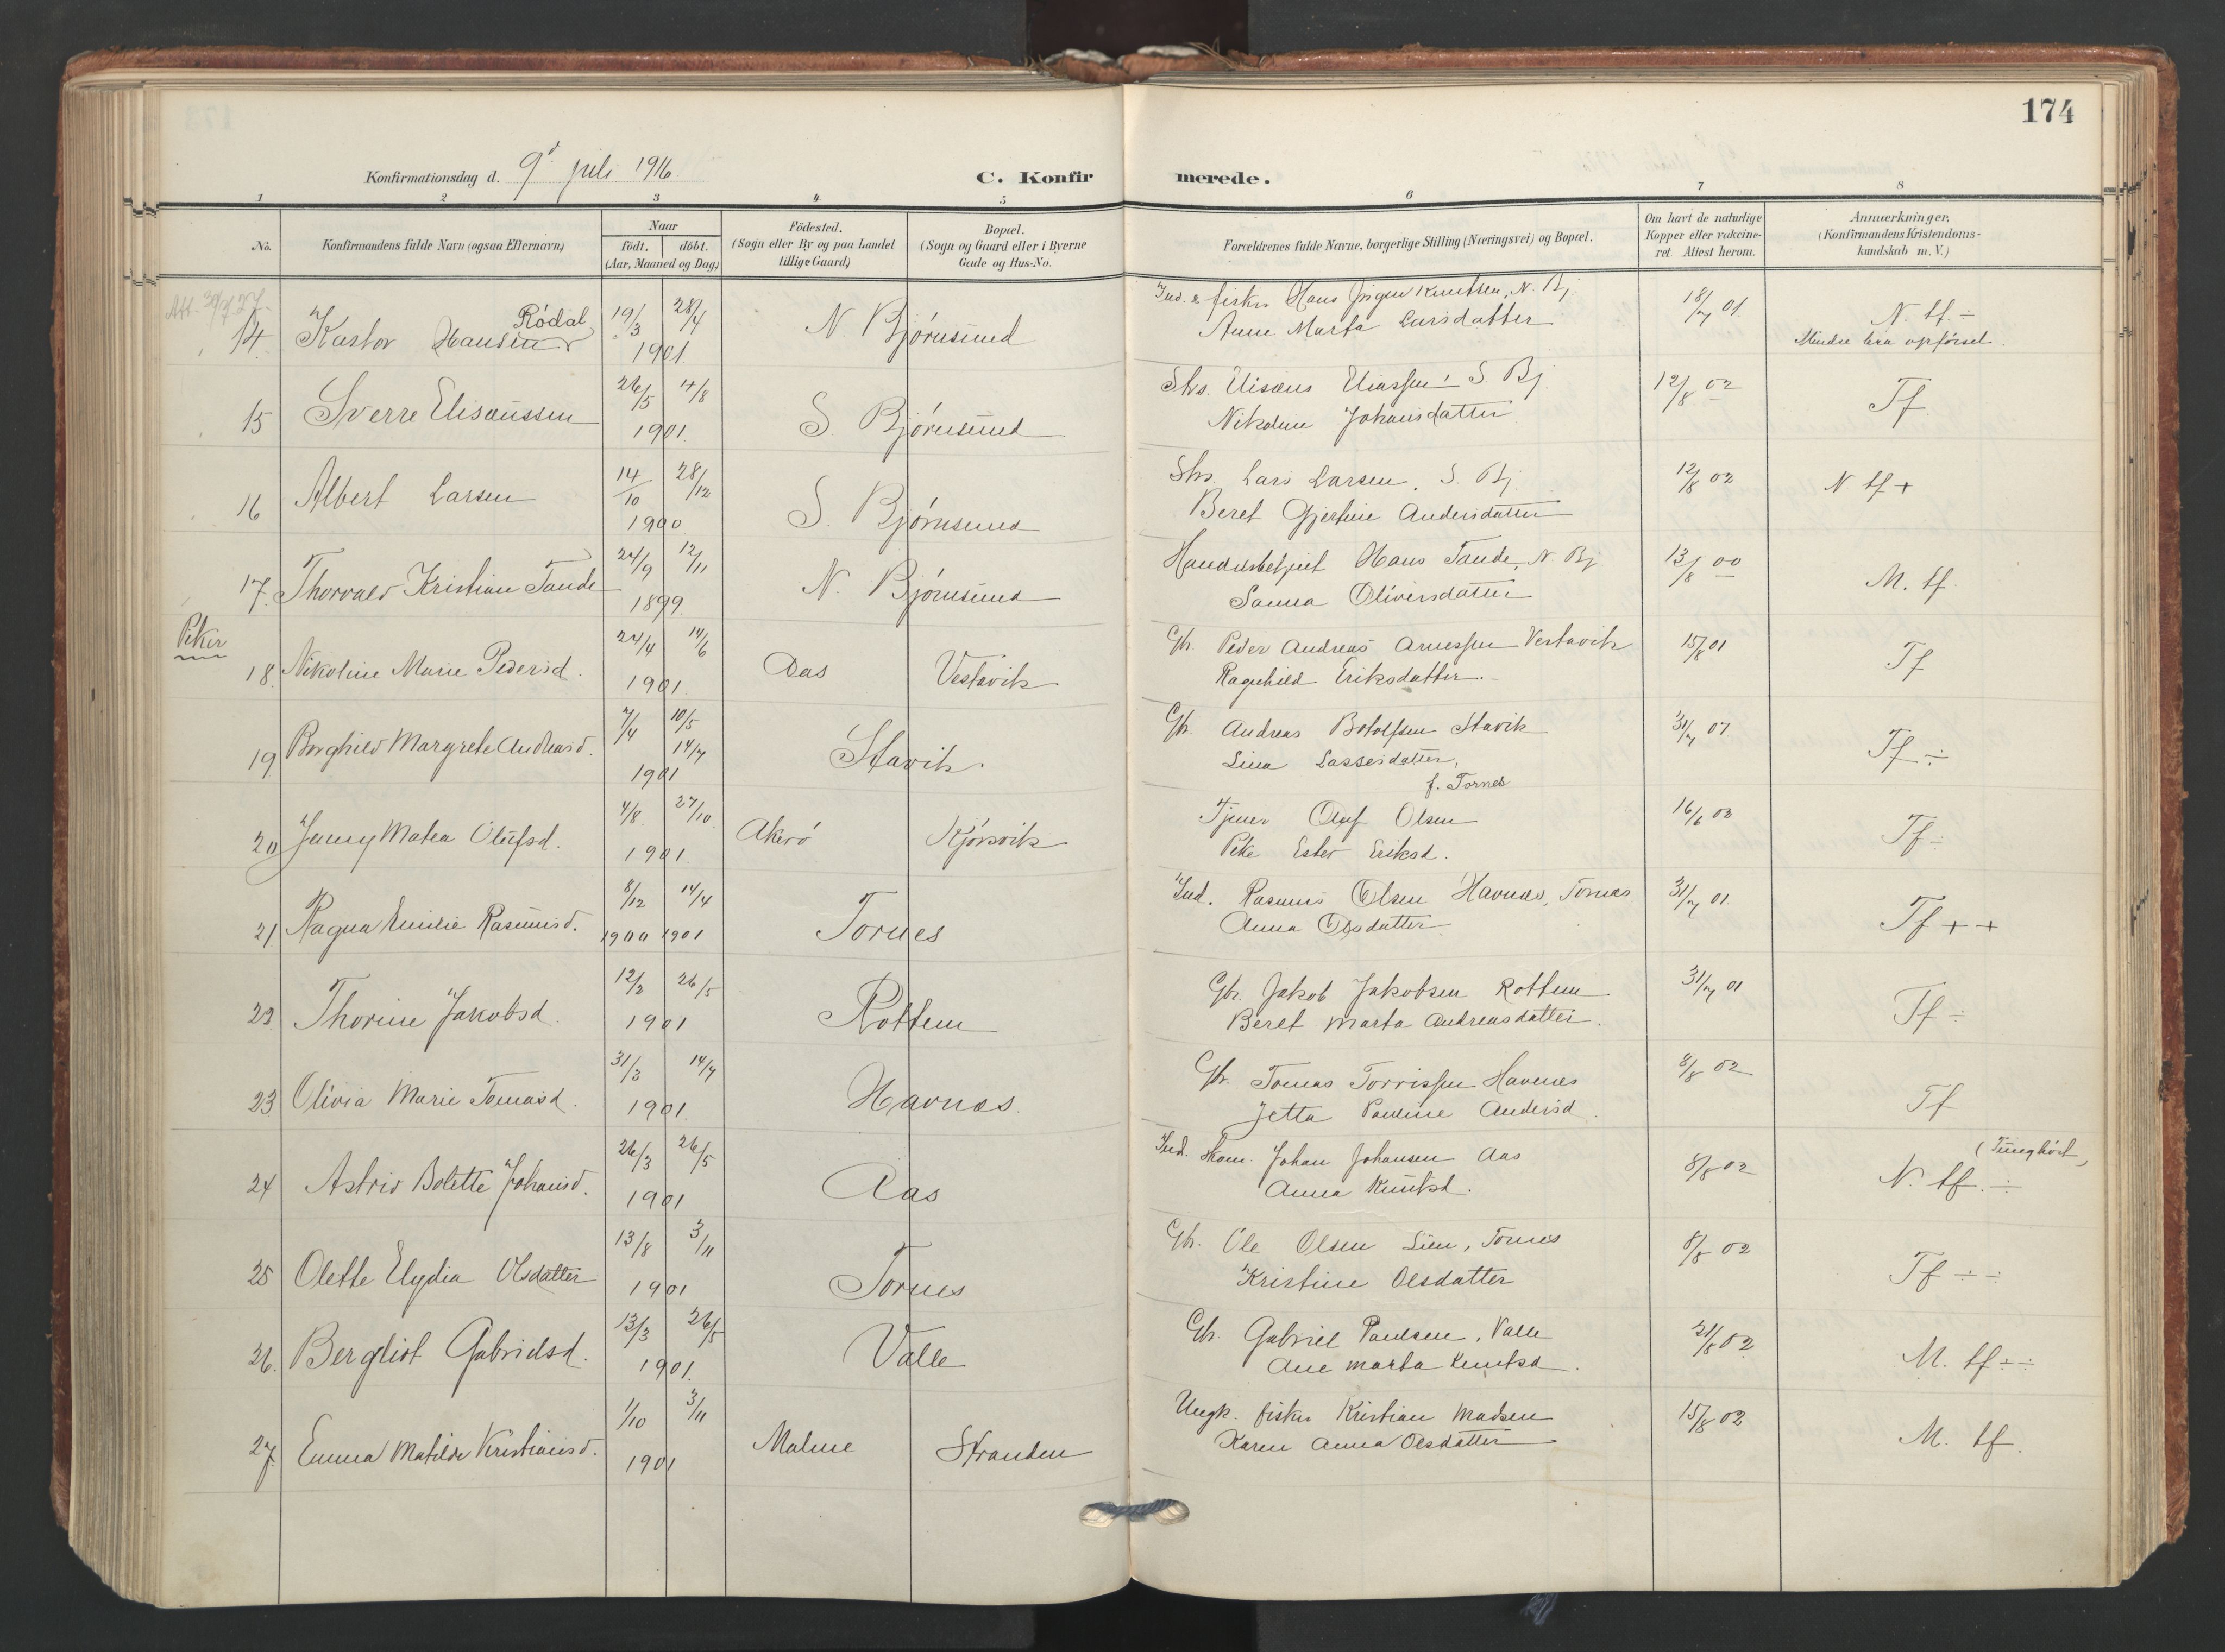 174
Konfirmationsdag d. 9d juli 1916
C. Konfirmerede.
1 2 3 4 5 6 7 8
No. Konfirmandens fulde Navn (ogsaa Efternavn) Naar født. døbt. (Aar, Maaned og Dag) Födested. (Sogn eller By og paa Landet tillige Gaard) Bopæl. (Sogn og Gaard eller i Byerne Gade og Hus-No. Forældrenes fulde Navne, borgerlige Stilling (Næringsvei) og Bopæl. Om havt de naturlige Kopper eller vakcineret Attest herom. Anmærkninger, (Konfirmandens Kristendomskundskab m. V.)
Att.
14 Kastor Hansen Rødal 19/3 28/4 1901 N. Bjørnsund Ind. & fisker Hans Jørgen Knutsen, N. Bj. 18/7 01 N. tf. ÷
Anne Marta Larsdatter Mindre bra opførsel.
15 Sverre Elisæussen 26/5 4/8 1901. S. Bjørnsund Strs. Elisæus Eliassen S. Bj. 12/8 02 Tf
Nikoline Johansdatter
16 Albert Larsen 14/10 28/12 1900 S. Bjørnsund Strs. Lars Larsen, S. Bj. 12/8 02 N. tf +
Beret Gjertine Andersdatter
17. Thorvald Kristian Tande 24/9 12/11 1899. N. Bjørnsund Handelsbetjent Hans Tande, N. Bj 13/8 00 M. tf.
Sanna Oliversdatter
Piker
18. Nikoline Marie Pedersd. 24/4 14/6 1901 Aas Vestavik Gbr. Peder Andreas Arnessen Vestavik 15/8 01 Tf
Ragnhild Eriksdatter.
19 Borghild Margrete Andreasd. 7/4 10/5 14/7 1901 Stavik. Gbr. Andreas Botolfsen Stavik 31/7 07 Tf ÷
Lina Lassesdatter,
f. Tornes
20 Jenny Matea Olufsd. 4/8 27/10 1901. Akerø Kjørsvik Tjener Oluf Olsen 16/6 03 Tf ÷
Pike Ester Eriksd.
21 Ragna Emilie Rasmusd. 8/12 14/4 1900 1901 Tornes Ind. Rasmus Olsen Havnæs, Tornes 31/7 01. Tf + +
Anna Olsdatter
22 Thorine Jakobsd. 12/2 26/5 1901 Rottem Gbr. Jakob Jakobsen Rottem 31/7 01 Tf ÷
Beret Marta Andreasdatter.
23 Olivia Marie Tomasd. 31/3 14/7 1901. Havnæs. Gbr. Tomas Torrissen Havnes 8/8 02 Tf
Jetta Pauline Andersd.
24 Astrid Bolette Johansd. 26/3 26/5 1901 Aas Ind. skom. Johan Johansen Aas 8/8 02 N. tf. ÷ (Tunghørt)
Anna Knutsd.
25 Olette Elydia Olsdatter 13/8 3/11 1901 Tornes Gbr. Ole Olsen Lien, Tornes 8/8 02 Tf ÷ ÷
Kristine Olsdatter
26. Bergliot Gabrielsd. 13/3 26/5 1901. Valle Gbr. Gabriel Paulsen, Valle 21/8 02 M. tf ÷ ÷
Ane Marta Knutsd.
27. Emma Matilde Kristiansd. 1/10 3/11 1901 Malme Stranden Ungk. fisker Kristian Madsen 15/8 02 M. tf.
Karen Anna Olsdatter